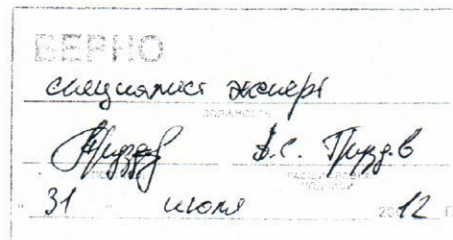 ВЕРНО
специалист эксперт
ДОЛЖНОСТЬ
В.С.
ПОДПИСЬ РАСШИФРОВКА
ПОДПИСИ
31 июля 2012 г.